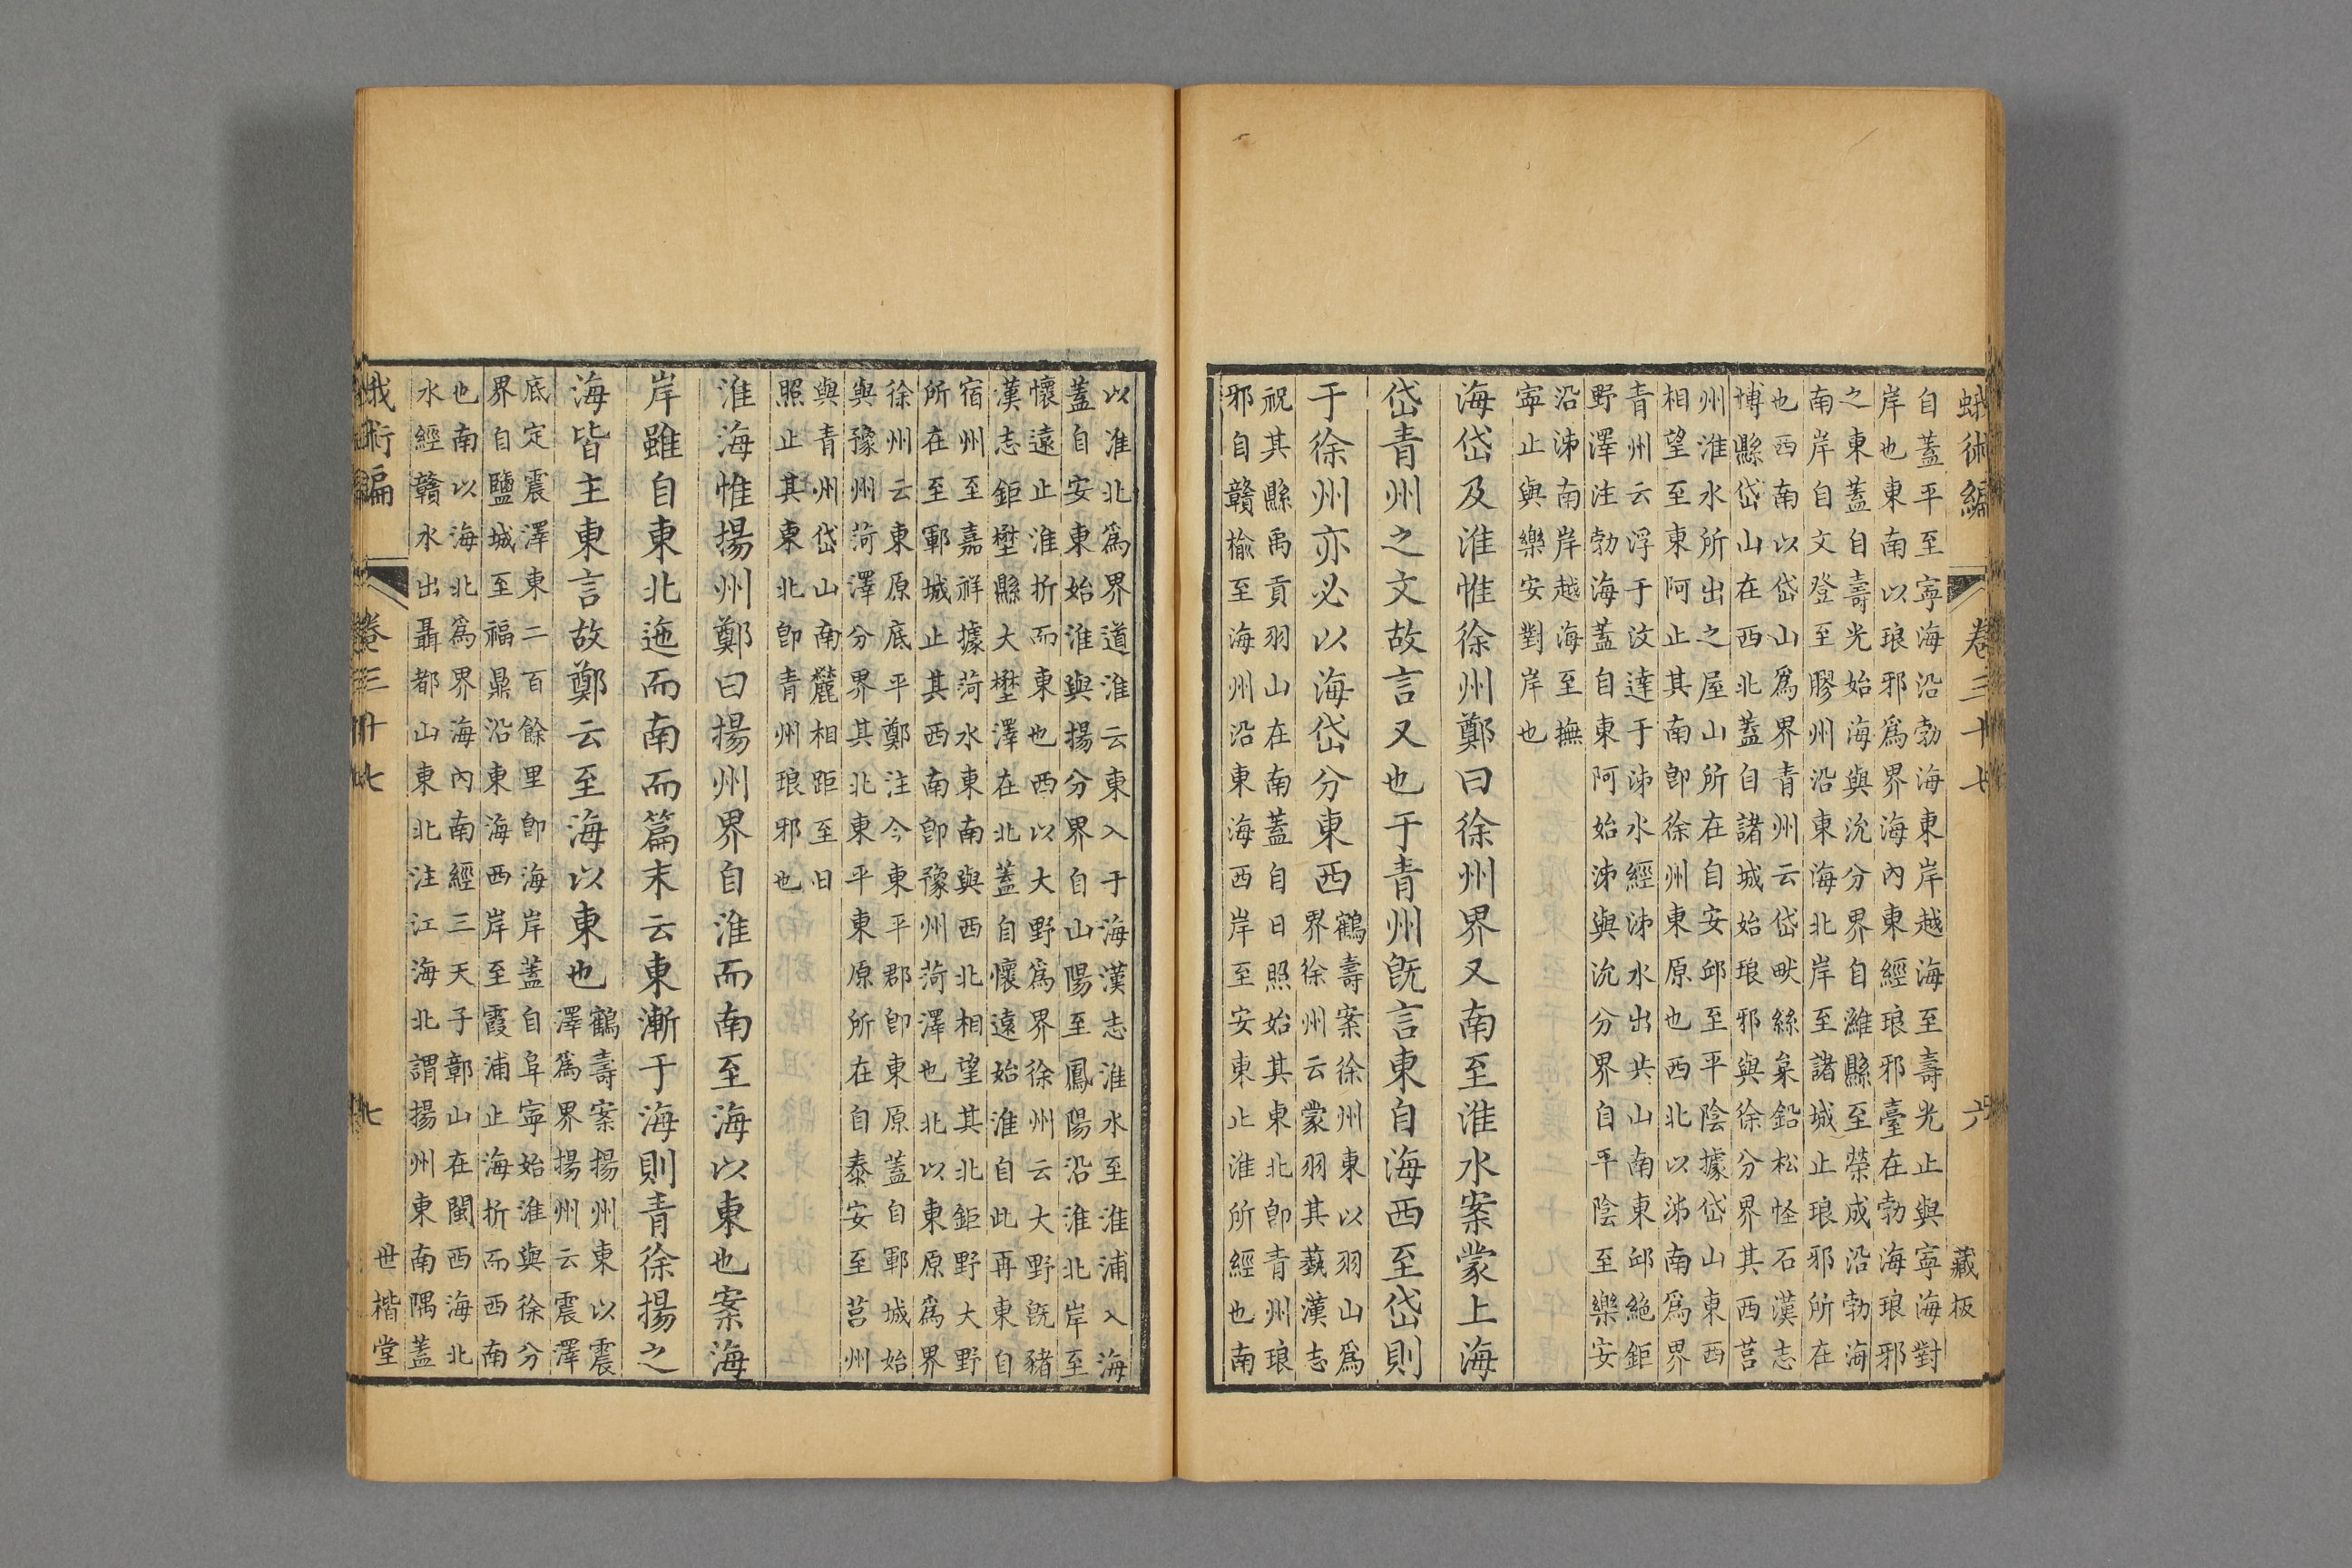 蛾術編 卷三十七 六 藏板
自蓋平至寧海沿勃海東岸越海至壽光止與寧海對
岸也東南以琅邪爲界海內東經琅邪臺在勃海琅邪
之東蓋自壽光始海與沇分界自濰縣至榮成沿勃海
南岸自文登至膠州沿東海北岸至諸城止琅邪所在
也西南以岱山爲界青州云岱畎絲枲鉛松怪石漢志
博縣岱山在西北蓋自諸城始琅邪與徐分界其西莒
州淮水所出之屋山所在自安邱至平陰據岱山東西
相望至東阿止其南卽徐州東原也西北以泲南爲界
青州云浮于汶達于泲水經泲水出共山南東邱絕鉅
野澤注勃海蓋自東阿始泲與沇分界自平陰至樂安
沿泲南岸越海至撫
寧止與樂安對岸也
海岱及淮惟徐州鄭曰徐州界又南至淮水案蒙上海
岱青州之文故言又也于青州旣言東自海西至岱則
于徐州亦必以海岱分東西
鶴壽案徐州東以羽山爲
界徐州云蒙羽其蓺漢志
祝其縣禹貢羽山在南蓋自日照始其東北卽青州琅
邪自贛楡至海州沿東海西岸至安東止淮所經也南
以淮北爲界道淮云東入于海漢志淮水至淮浦入海
蓋自安東始淮與揚分界自山陽至鳳陽沿淮北岸至
懷遠止淮折而東也西以大野爲界徐州云大野旣豬
漢志鉅壄縣大壄澤在北蓋自懷遠始淮自此再東自
宿州至嘉祥據菏水東南與西北相望其北鉅野大野
所在至鄆城止其西南卽豫州菏澤也北以東原爲界
徐州云東原底平鄭注今東平郡卽東原蓋自鄆城始
與豫州菏澤分界其北東平東原所在自泰安至莒州
與青州岱山南麓相距至日
照止其東北卽青州琅邪也
淮海惟揚州鄭曰揚州界自淮而南至海以東也案海
岸雖自東北迤而南而篇末云東漸于海則青徐揚之
海皆主東言故鄭云至海以東也
鶴壽案揚州東以震
澤爲界揚州云震澤
底定震澤東二百餘里卽海岸蓋自阜寧始淮與徐分
界自鹽城至福鼎沿東海西岸至霞浦止海折而西南
也南以海北爲界海內南經三天子鄣山在閩西海北
水經贛水出聶都山東北注江海北謂揚州東南隅蓋
蛾術編 卷三十七 七 世楷堂